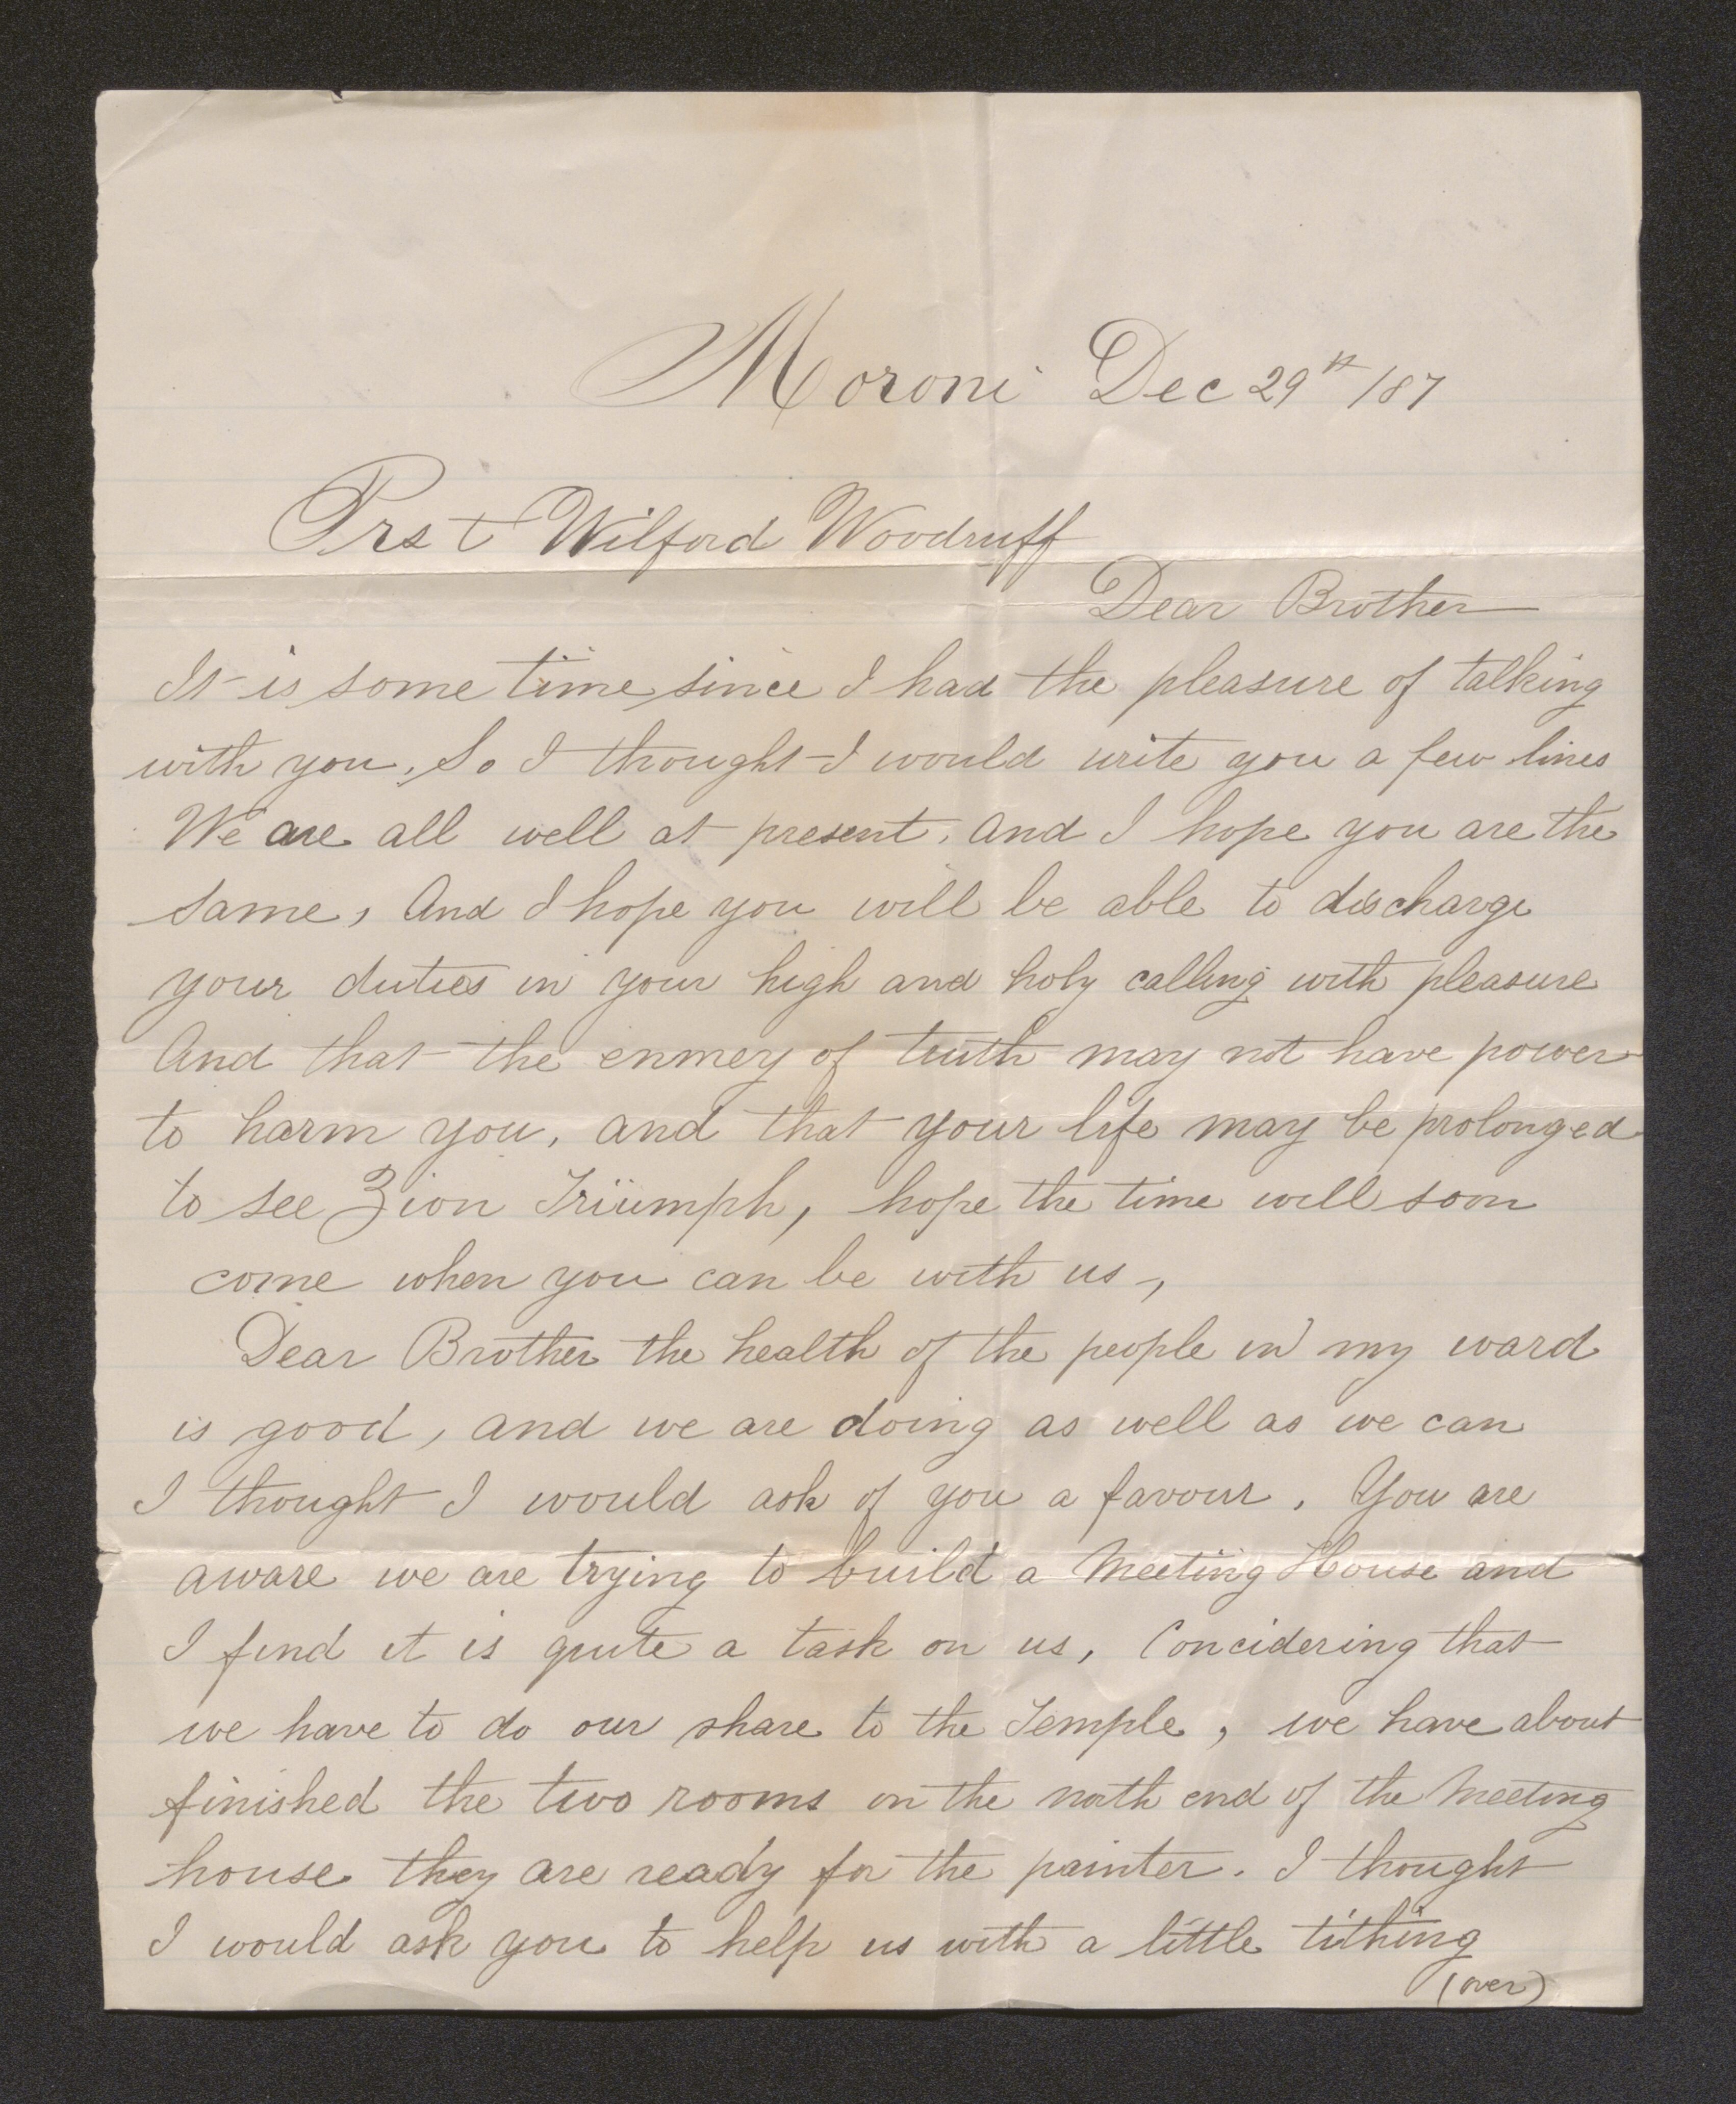 Moroni Dec 29th /87
Prst Wilford Woodruff
Dear Brother
It is some time since I had the pleasure of talking
with you, So I thought I would write you a few lines
We are all well at present, and I hope you are the
same, And I hope you will be able to discharge
your duties in your high and holy calling with pleasure
And that the enmey of truth may not have power
to harm you, and that your life may be prolonged
to see Zion Triumph, hope the time will soon
come when you can be with us,
Dear Brother the health of the people in my ward
is good, and we are doing as well as we can
I thought I would ask of you a favour. You are
aware we are trying to build a Meeting House and
I find it is quite a task on us, Concidering that
we have to do our share to the Temple, we have about
finished the two rooms on the north end of the Meeting
house they are ready for the painter. I thought
I would ask you to help us with a little tithing
(over)